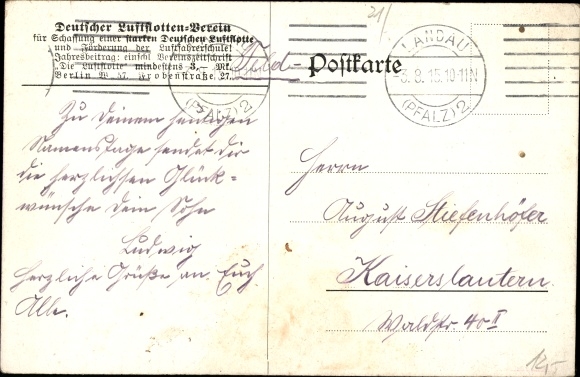 Deutscher Luftflotten-Verein
für Schaffung einer starken Deutschen Luftflotte
und Förderung der Luftfahrerschule!
Jahresbeitrag: einschl Vereinszeitschrift
"Die Luftflotte" mindestens 3,- Mk.
Berlin W 57, Grobenstraße 27.
21/
Feld-Postkarte
LANDAU
-3.8.15.10-11N
(PFALZ) 2
(PFALZ) 2
Zu Deinem heutigen
Namenstage sendet dir
die herzlichsten Glück-
wünsche Dein Sohn
Ludwig
Herzliche Grüße an Euch
Alle.
Herrn
August Stiefenhöfer
Kaiserslautern
Waldstr 40 II
12,-